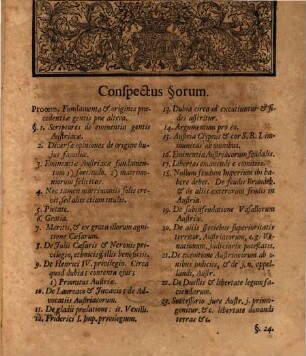 Conspectus §orum.
Prooem. Fundamenta & origines præ-
cedentiæ gentis præ altera.
§. 1. Scriptores de eminentia gentis
Austriacæ.
2. Diversæ opiniones de origine hu-
jus familiæ.
3. Eminentiæ Austriacæ fundamen-
tum 1) fortitudo. 2) matrimo-
niorum felicitas.
4. Nec tamen matrimoniis felix cre-
vit, sed aliis etiam titulis.
5. Pietate.
6. Gratia.
7. Meritis, & ex grata illorum agni-
tione Cæsarum.
8. De Julii Cæsaris & Neronis privi-
legiis, ethnicis illis beneficiis.
9. De Henrici IV. privilegio. Circa
quod dubia & contenta ejus;
1) Primatus Austriæ.
10. De Laureaco & Juvavio & de Ad-
vocatiis Austriacorum.
11. De gladii prælatione: it. Venilli.
12. Friderici I. Imp. privilegium.
13. Dubia circa id excutiuntur & fi-
des asseritur.
14. Argumentum pro eo.
15. Austria Clypeus & cor S. R. I. im-
munitas ab omnibus.
16. Eminentia Austriacorum feudalis.
17. Libertas eximendi e comitiis.
18. Nullum feudum Imperium ibi ha-
bere debet. De feudis Brandeb.
& de aliis exterorum feudis in
Austria.
19. De subinfeudatione Vasallorum
Austriæ.
20. De aliis speciebus superioritatis
territor. Austriacorum, e.g. Ve-
nationum, judiciariæ potestatis.
21. De exemtione Austriacorum ab o-
mnibus judiciis, & de j. n. appel-
landi, Austr.
22. De Duellis & libertate legum fa-
ciendarum.
23. Successorio jure Austr. j. primo-
geniturae, & c. libertate donandi
terras &c.
§. 24.